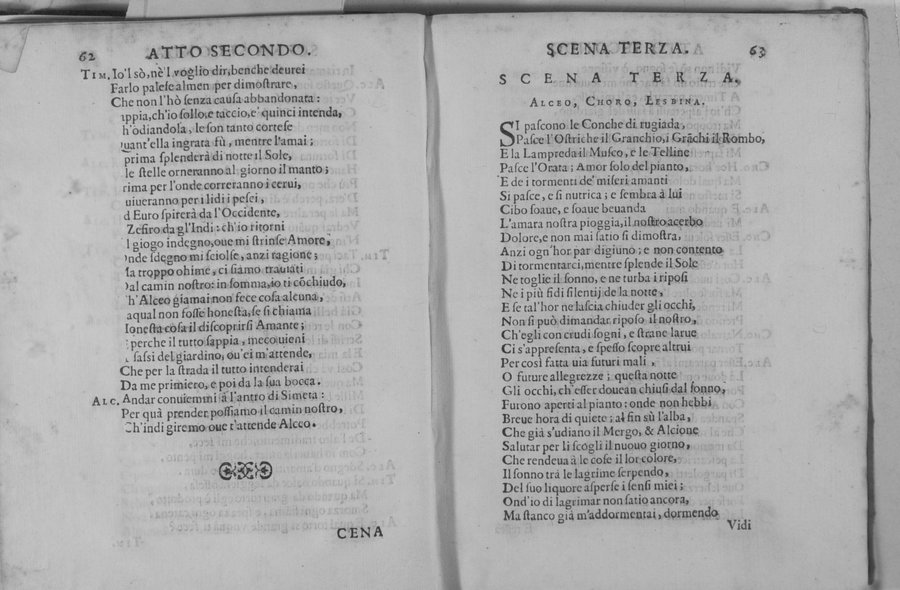 62 ATTO SECONDO.
TIM. Io'l sò, nè'l voglio dir, benche deurei
Farlo palese almen per dimostrare,
Che non l'hò senza causa abbandonata:
ppia, ch'io sollo, e taccio, e' quinci intenda,
h'odiandola, le son tanto cortese
uant'ella ingrata fù, mentre l'amai;
prima splenderà di notte il Sole,
le stelle orneranno al giorno il manto;
rima per l'onde correranno i cerui,
uiueranno per i lidi i pesci,
d Euro spirerà da l'Occidente,
Zefiro da gl'Indi: ch'io ritorni
l giogo indegno, oue mi strinse Amore,
nde sdegno mi sciolse, anzi ragione;
la troppo ohime, ci siamo trauiati
al camin nostro: in somma, io ti cōchiudo,
h'Alceo giamai non fece cosa alcuna,
aqual non fosse honesta, se si chiama
Ionesta cosa il discoprirsi Amante;
perche il tutto sappia, meco uieni
sassi del giardino, ou'ei m'attende,
Che per la strada il tutto intenderai
Da me primiero, e poi da la sua bocca.
ALC. Andar conuiemmi à l'antro di Simeta:
Per quà prender possiamo il camin nostro,
Ch'indi giremo oue t'attende Alceo.
CENA
SCENA TERZA. 63
SCENA TERZA.
ALCEO, CHORO, LESBINA.
SI pascono le Conche di rugiada,
Pasce l'Ostriche il Granchio, i Grāchi il Rombo,
E la Lampreda il Musco, e le Telline
Pasce l'Orata; Amor solo del pianto,
E de i tormenti de' miseri amanti
Si pasce, e si nutrica; e sembra à lui
Cibo soaue, e soaue beuanda
L'amara nostra pioggia, il nostro acerbo
Dolore, e non mai satio si dimostra,
Anzi ogn'hor par digiuno; e non contento
Di tormentarci, mentre splende il Sole
Ne toglie il sonno, e ne turba i riposi
Ne i più fidi silentij de la notte,
E se tal'hor ne lascia chiuder gli occhi,
Non si può dimandar riposo il nostro,
Ch'egli con crudi sogni, e strane larue
Ci s'appresenta, e spesso scopre altrui
Per così fatta uia futuri mali,
O future allegrezze; questa notte
Gli occhi, ch'esser douean chiusi dal sonno,
Furono aperti al pianto: onde non hebbi
Breue hora di quiete; al fin sù l'alba,
Che già s'udiano il Mergo, & Alcione
Salutar per li scogli il nuouo giorno,
Che rendeua à le cose il lor colore,
Il sonno trà le lagrime serpendo,
Del suo liquore asperse i sensi miei;
Ond'io di lagrimar non satio ancora,
Ma stanco già m'addormentai, dormendo
Vidi